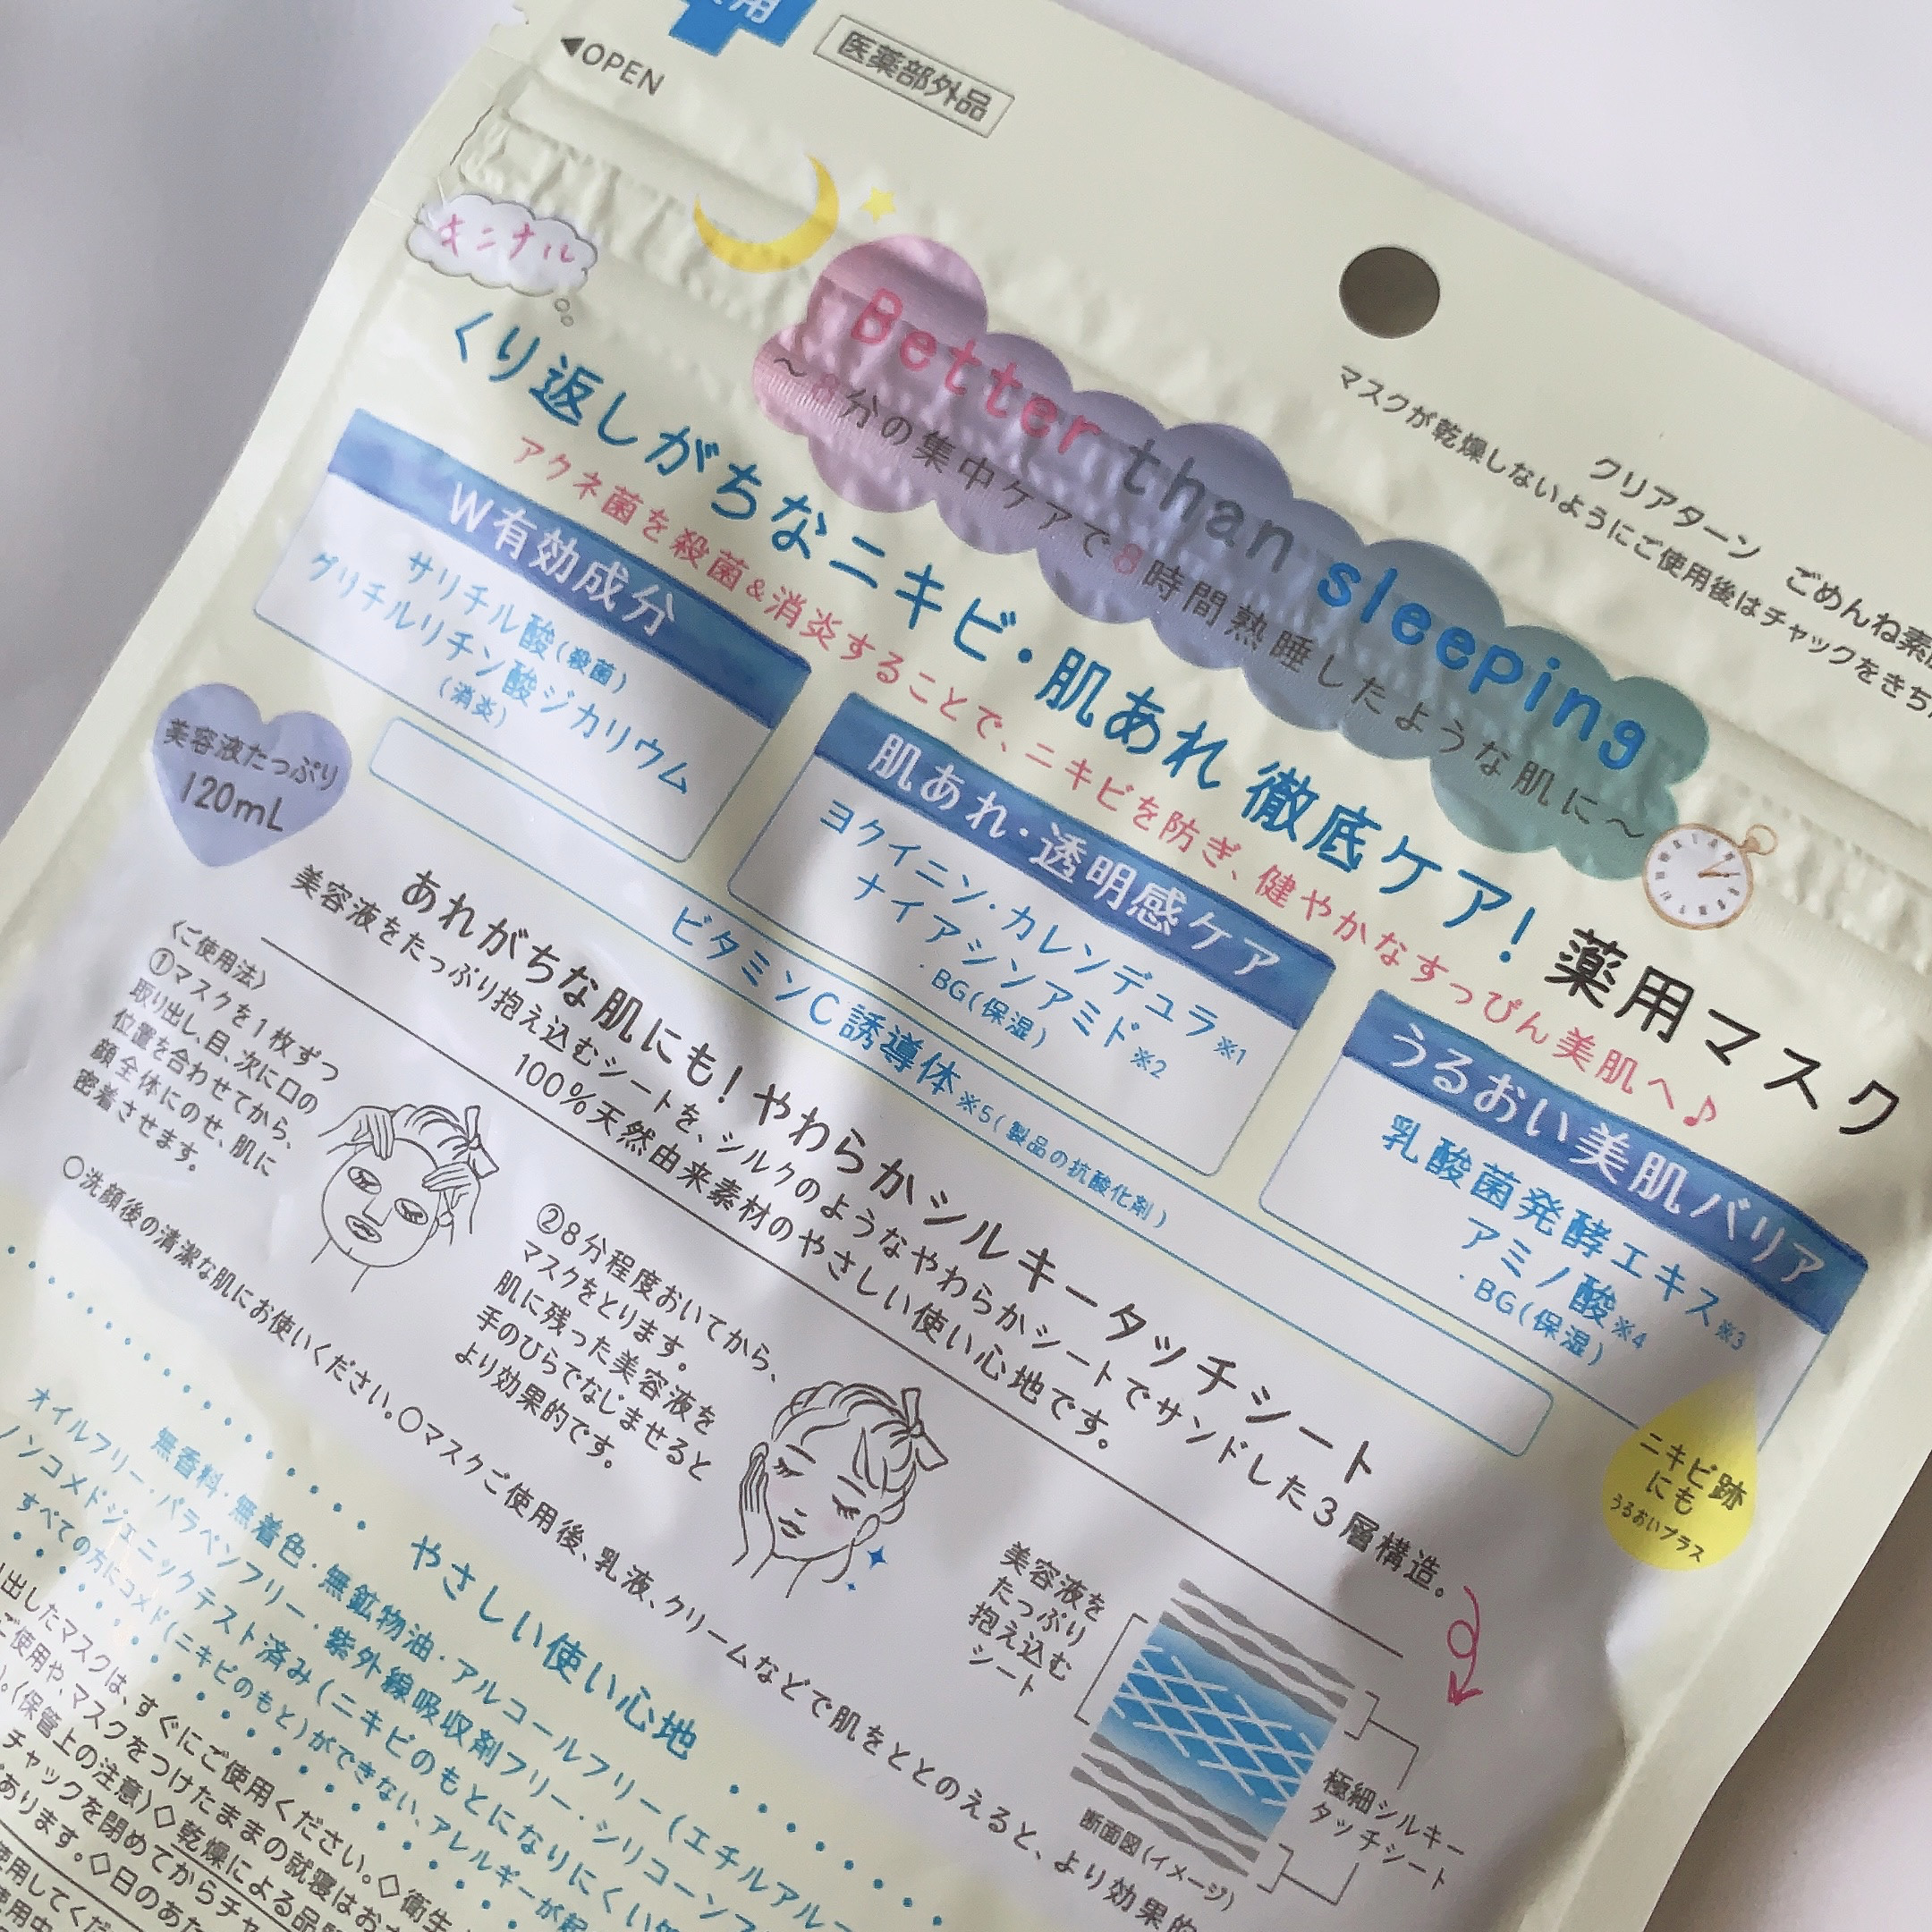 用
医薬部外品
◀OPEN
マスクが乾燥しないようにご使用後はチャックをきち
クリアターン ごめんね素
キニナル
Better than sleeping
~8分の集中ケアで8時間熟睡したような肌に~
くり返しがちなニキビ・肌あれ 徹底ケア! 薬用マスク
アクネ菌を殺菌&消炎することで、ニキビを防ぎ、健やかなすっぴん美肌へ♪
W有効成分
サリチル酸(殺菌)
グリチルリチン酸ジカリウム
(消炎)
肌あれ・透明感ケア
ヨクイニン・カレンデュラ※1
ナイアシンアミド※2
・BG(保湿)
うるおい美肌バリア
乳酸菌発酵エキス※3
アミノ酸※4
・BG(保湿)
ビタミンC誘導体※5(製品の抗酸化剤)
美容液たっぷり
120mL
ニキビ跡
にも
うるおいプラス
あれがちな肌にも! やわらかシルキータッチシート
美容液をたっぷり抱え込むシートを、シルクのようなやわらかシートでサンドした3層構造。
100%天然由来素材のやさしい使い心地です。
〈ご使用法〉
①マスクを1枚ずつ
取り出し、目、次に口の
位置を合わせてから、
顔全体にのせ、肌に
密着させます。
②8分程度おいてから、
マスクをとります。
肌に残った美容液を
手のひらでなじませると
より効果的です。
美容液を
たっぷり
抱え込む
シート
極細シルキー
タッチシート
断面図(イメージ)
○洗顔後の清潔な肌にお使いください。○マスクご使用後、乳液、クリームなどで肌をととのえると、より効果的
やさしい使い心地
無香料・無着色・無鉱物油・アルコールフリー(エチルアルコ
オイルフリー・パラベンフリー・紫外線吸収剤フリー・シリコーンフ
ノンコメドジェニックテスト済み(ニキビのもとになりにくい処
すべての方にコメド(ニキビのもと)ができない、アレルギーが起
出したマスクは、すぐにご使用ください。◇衛生
ご使用や、マスクをつけたままの就寝はお
。〈保管上の注意〉◇乾燥による品
チャックを閉めてからチャ
あります。◇日のあた
使用してくだ
使用中